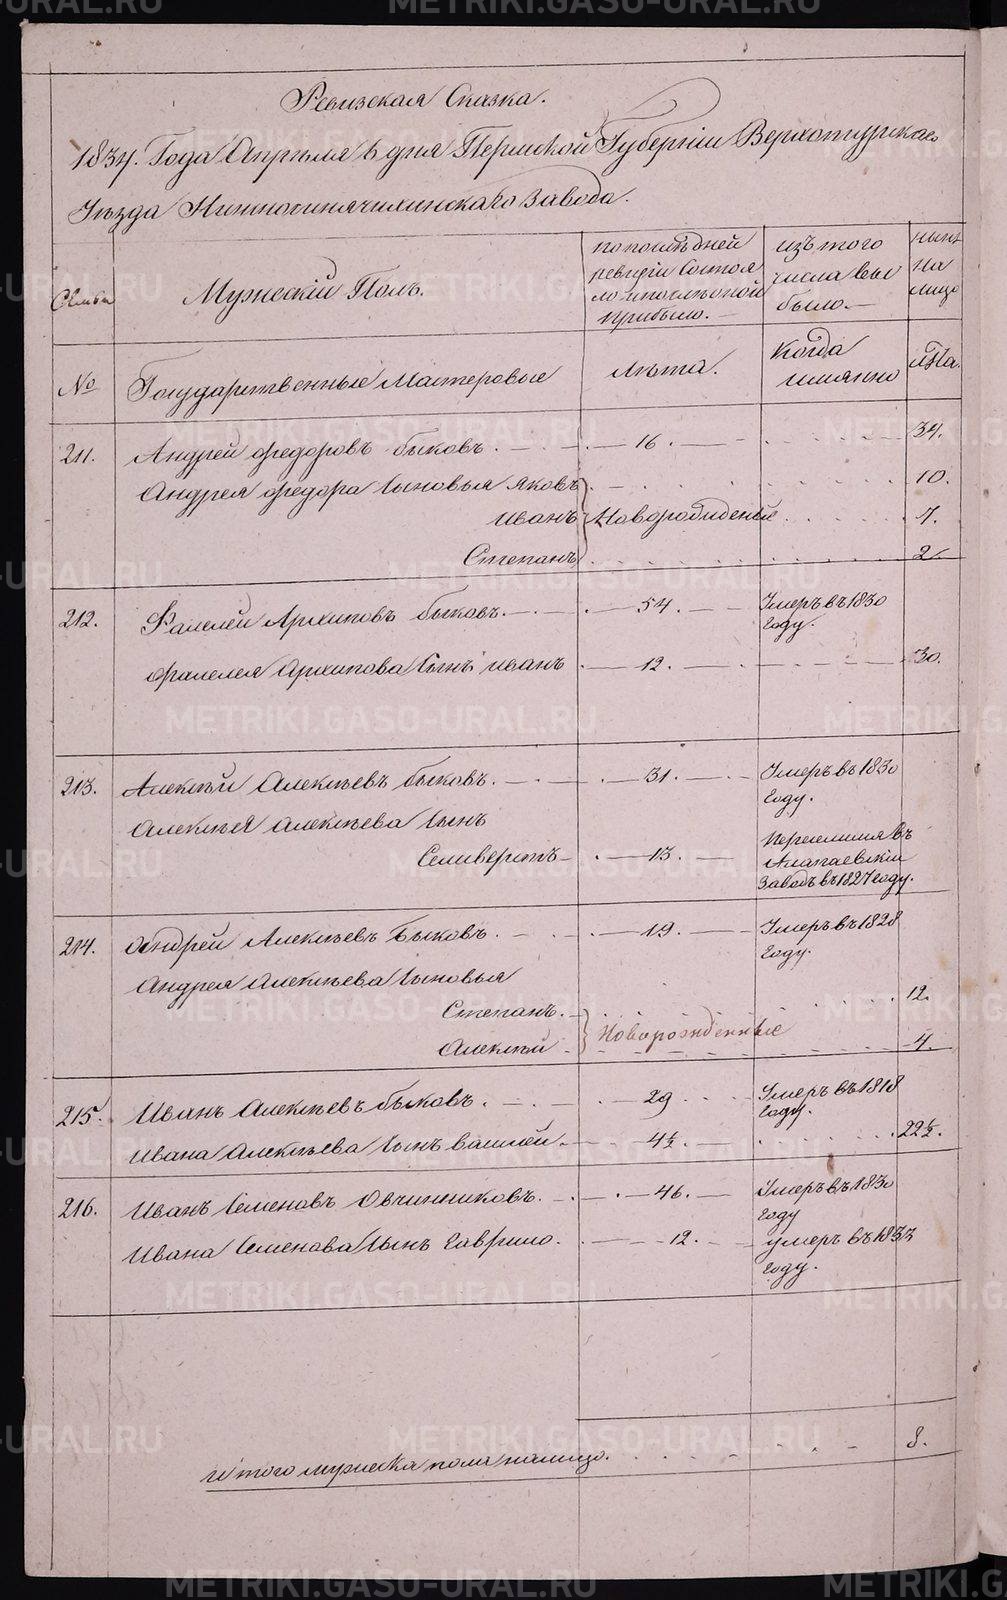 Ревизская Сказка.
1834. Года Апреля 6 дня Пермской Губернiи Верхотурскаго
Уѣзда Нижнесинячихинскаго Завода.
Семьи
Мужескiй Полъ.
по последней
ревизiи состоя
ло и после оной
прибыло.
изъ того
числа вы
было.
нынѣ
на
лицо
№
Государственные Мастеровые
Лѣта.
Когда
именно
Лѣта.
211. Андрей Федоровъ Быковъ. 16. 34.
Андрея Федора сыновья Яковъ 10.
Иванъ Новорожденые 7.
Степанъ 2.
212. Фалелей Архиповъ Быковъ. 54. Умеръ въ 1830
году.
Фалелея Архипова сынъ Иванъ 12. 30.
213. Алексѣй Алексѣевъ Быковъ. 31. Умеръ въ 1830
году.
Алексѣя Алексѣева сынъ
Селиверстъ 13. Переселился въ
Алапаевскiй
Заводъ въ 1827 году.
214. Андрей Алексѣевъ Быковъ. 19. Умеръ въ 1828
году.
Андрея Алексѣева сыновья
Степанъ. 12.
Алексѣй Новорожденные 4.
215. Иванъ Алексѣевъ Быковъ. 29 Умеръ въ 1818
году.
Ивана Алексѣева сынъ Василей. 4½. 22½.
216. Иванъ Семеновъ Овчинниковъ. 46. Умеръ въ 1830
году
Ивана Семенова сынъ Гаврило. 12. умеръ въ 1833
году.
Итого мужеска пола налицо. 8.
METRIKI.GASO-URAL.RU